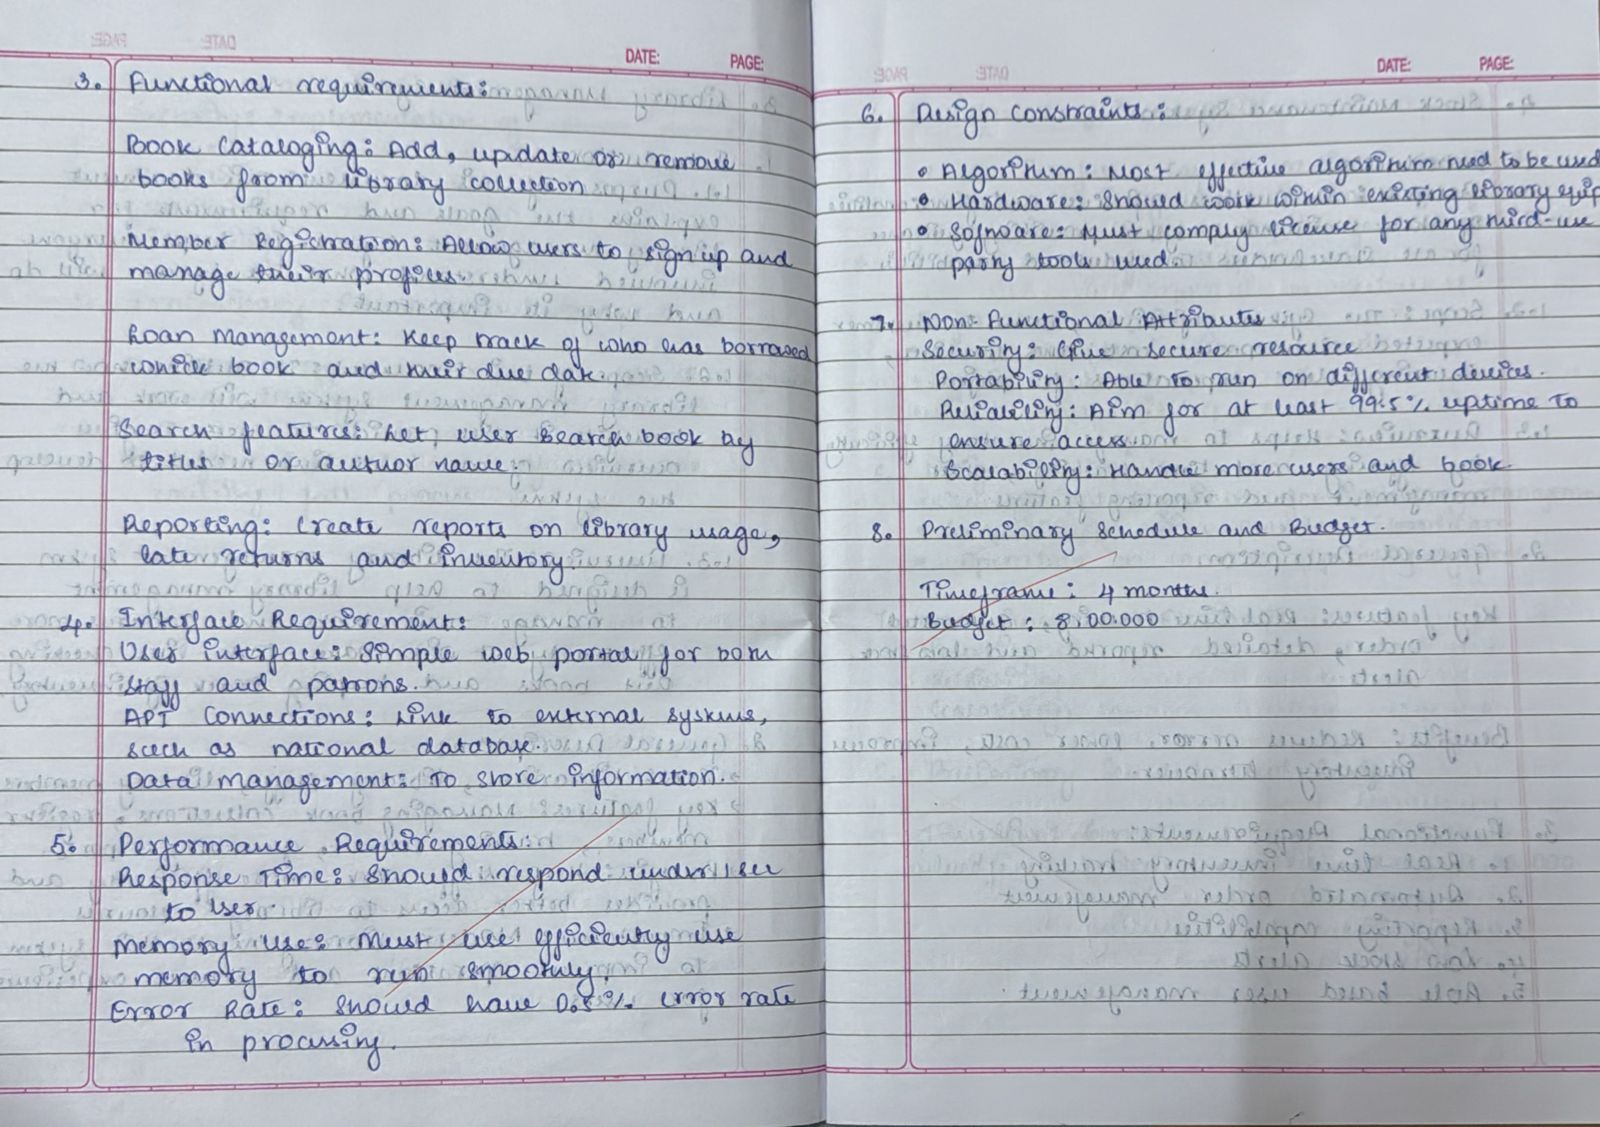 DATE: PAGE:
3. Functional requirements:
Book Cataloging: Add, update or remove
books from library collection
Member Registration: Allow users to sign up and
manage their profiles.
Loan Management: Keep track of who has borrowed
which book and their due date.
Search features: Let user search book by
titles or author name.
Reporting: Create reports on library usage,
late returns and inventory.
4. Interface Requirement:
User interface: Simple web portal for both
staff and patrons.
API Connections: Link to external systems,
such as national database.
Data management: To store information.
5. Performance Requirements:
Response Time: Should respond under 1 sec
to user.
Memory use: Must use efficiently use
memory to run smoothly.
Error Rate: Should have 0.5% error rate
in processing.
DATE: PAGE:
6. Design constraints:
• Algorithm: Most effective algorithm need to be used
• Hardware: Should work within existing library equip
• Software: Must comply license for any third-use
party tools used.
7. Non-Functional Attributes
Security: Give secure resource
Portability: Able to run on different devices.
Reliability: Aim for at least 99.5% uptime to
ensure access
Scalability: Handle more users and book
8. Preliminary Schedule and Budget.
Timeframe: 4 months.
Budget: 8,00.000